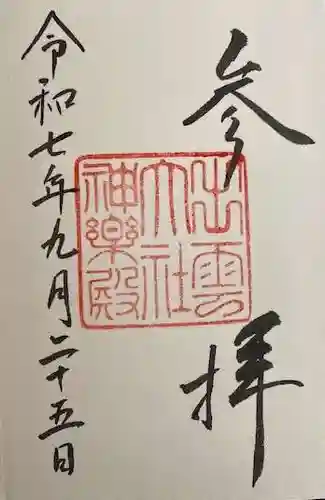 参拝
出雲
大社
神楽殿
令和七年九月二十五日